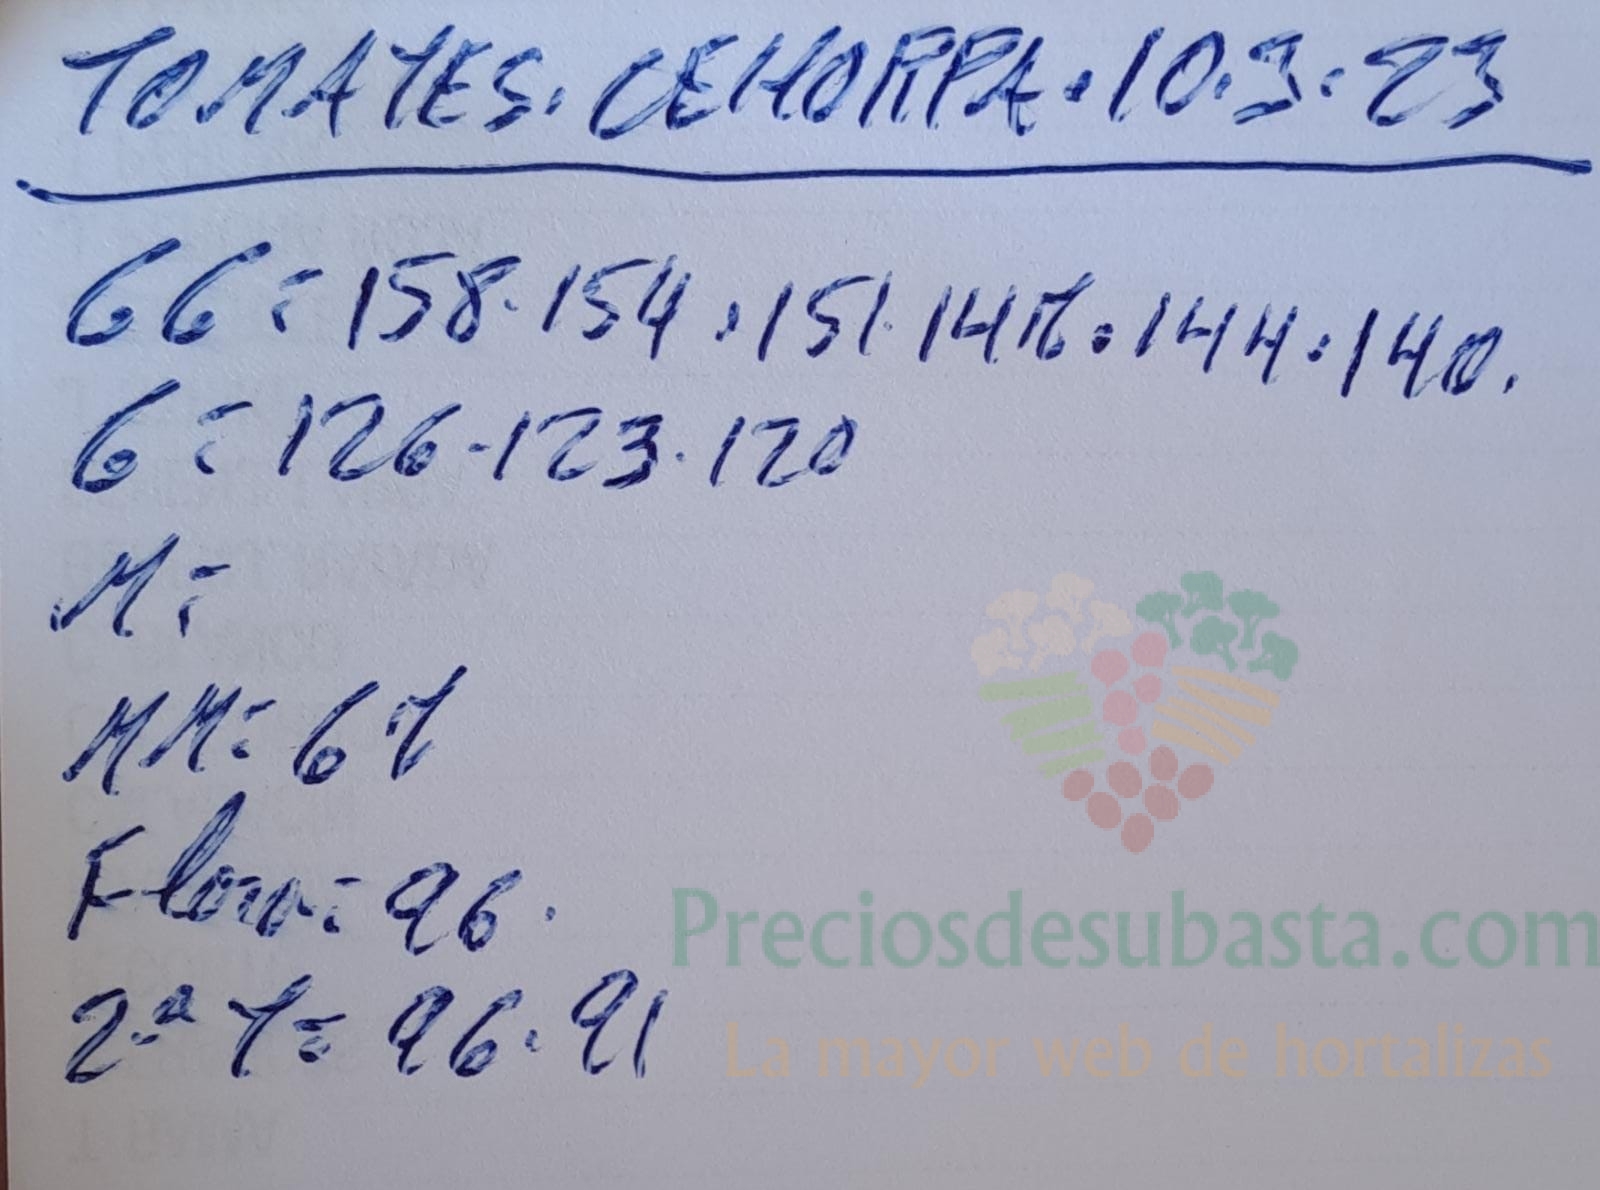 TOMATES. CEHORPA. 10.3.23
GG = 158. 154. 151. 147. 144. 140.
G = 126. 123. 120
M =
MM = 67
Floro = 96.
2.ª T = 96. 91
Preciosdesubasta.com
La mayor web de hortalizas